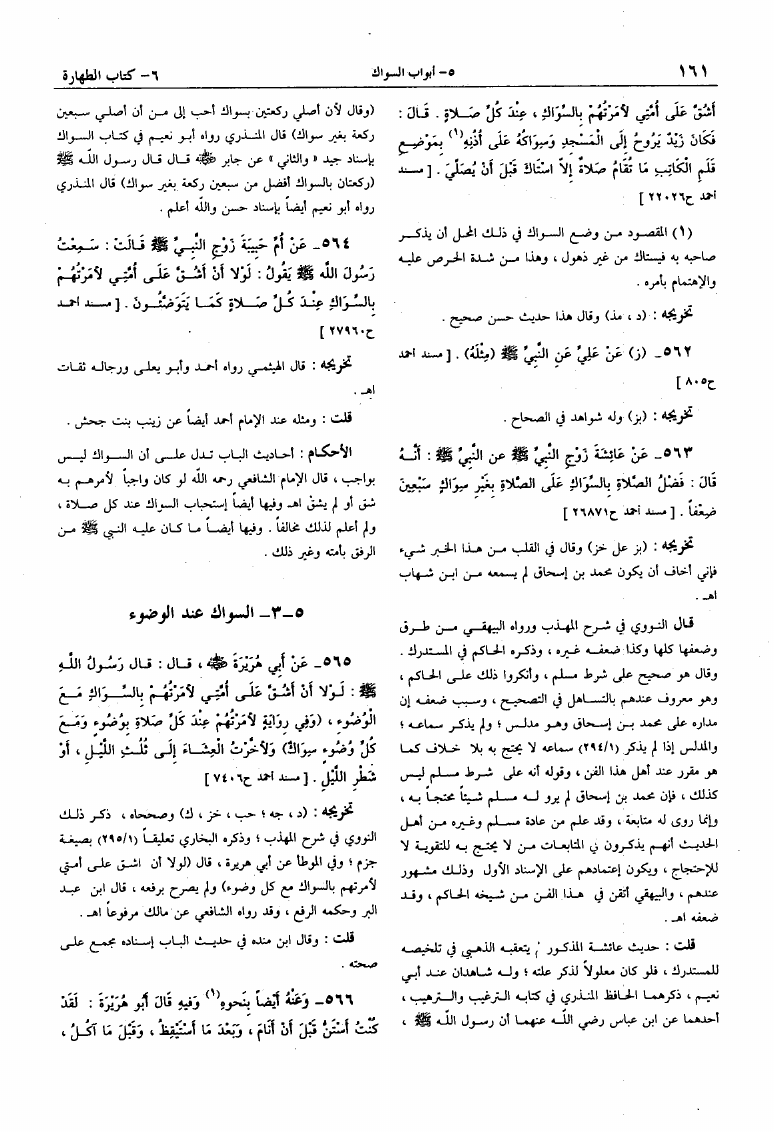 ١٦١
٥- أبواب السواك
٦- كتاب الطهارة
أَشُقَّ عَلَى أُمَّتِي لأَمَرْتُهُمْ بِالسِّوَاكِ ، عِنْدَ كُلِّ صَلاةٍ . قَالَ :
فَكَانَ زَيْدٌ يَرُوحُ إِلَى الْمَسْجِدِ وَسِوَاكُهُ عَلَى أُذُنِهِ (١) بِمَوْضِعِ
قَلَمِ الْكَاتِبِ مَا تُقَامُ صَلاةٌ إِلاَّ اسْتَاكَ قَبْلَ أَنْ يُصَلِّيَ . [ مسند
احمد ح٢٢٠٢٦ ]
(١) المقصود من وضع السواك في ذلك المحل أن يذكر
صاحبه به فيستاك من غير ذهول ، وهذا من شدة الحرص عليه
والإهتمام بأمره .
تخريجه : (د ، مذ) وقال هذا حديث حسن صحيح .
٥٦٢- (ز) عَنْ عَلِيٍّ عَنِ النَّبِيِّ ﷺ (مِثْلَهُ) . [ مسند احمد
ح٨٠٥ ]
تخريجه : (بز) وله شواهد في الصحاح .
٥٦٣- عَنْ عَائِشَةَ زَوْجِ النَّبِيِّ ﷺ عن النَّبِيِّ ﷺ : أَنَّهُ
قَالَ : فَضْلُ الصَّلاةِ بِالسِّوَاكِ عَلَى الصَّلاةِ بِغَيْرِ سِوَاكٍ سَبْعِينَ
ضِعْفاً . [ مسند احمد ح٢٦٨٧١ ]
تخريجه : (بز عل خز) وقال في القلب من هذا الخبر شيء
فإني أخاف أن يكون محمد بن إسحاق لم يسمعه من ابن شهاب
اهـ .
قال النووي في شرح المهذب ورواه البيهقي من طرق
وضعفها كلها وكذا ضعفه غيره ، وذكره الحاكم في المستدرك .
وقال هو صحيح على شرط مسلم ، وأنكروا ذلك على الحاكم ،
وهو معروف عندهم بالتساهل في التصحيح ، وسبب ضعفه إن
مداره على محمد بن إسحاق وهو مدلس ؛ ولم يذكر سماعه ؛
والمدلس إذا لم يذكر (٢٩٤/١) سماعه لا يحتج به بلا خلاف كما
هو مقرر عند أهل هذا الفن ، وقوله أنه على شرط مسلم ليس
كذلك ، فإن محمد بن إسحاق لم يرو له مسلم شيئاً محتجاً به ،
وإنما روى له متابعة ، وقد علم من عادة مسلم وغيره من أهل
الحديث أنهم يذكرون في المتابعات من لا يحتج به للتقوية لا
للإحتجاج ، ويكون إعتمادهم على الإسناد الأول وذلك مشهور
عندهم ، والبيهقي أتقن في هذا الفن من شيخه الحاكم ، وقد
ضعفه اهـ .
قلت : حديث عائشة المذكور لم يتعقبه الذهبي في تلخيصه
للمستدرك ، فلو كان معلولاً لذكر علته ؛ وله شاهدان عند أبي
نعيم ، ذكرهما الحافظ المنذري في كتابه الترغيب والترهيب ،
أحدهما عن ابن عباس رضي الله عنهما أن رسول الله ﷺ ،
(وقال لأن أصلي ركعتين بسواك أحب إلى من أن أصلي سبعين
ركعة بغير سواك) قال المنذري رواه أبو نعيم في كتاب السواك
بإسناد جيد « والثاني » عن جابر ﷺ قال قال رسول الله ﷺ
(ركعتان بالسواك أفضل من سبعين ركعة بغير سواك) قال المنذري
رواه أبو نعيم أيضاً بإسناد حسن والله أعلم .
٥٦٤- عَنْ أُمِّ حَبِيبَةَ زَوْجِ النَّبِيِّ ﷺ قَالَتْ : سَمِعْتُ
رَسُولَ الله ﷺ يَقُولُ : لَوْلا أَنْ أَشُقَّ عَلَى أُمَّتِي لأَمَرْتُهُمْ
بِالسِّوَاكِ عِنْدَ كُلِّ صَلاةٍ كَمَا يَتَوَضَّئُونَ . [ مسند احمد
ح٢٧٩٦٠ ]
تخريجه : قال الهيثمي رواه أحمد وأبو يعلى ورجاله ثقات
اهـ .
قلت : ومثله عند الإمام أحمد أيضاً عن زينب بنت جحش .
الأحكام : أحاديث الباب تدل على أن السواك ليس
بواجب ، قال الإمام الشافعي رحمه الله لو كان واجباً لأمرهم به
شق أو لم يشق اهـ وفيها أيضاً إستحباب السواك عند كل صلاة ،
ولم أعلم لذلك مخالفاً . وفيها أيضاً ما كان عليه النبي ﷺ من
الرفق بأمته وغير ذلك .
٥-٣- السواك عند الوضوء
٥٦٥- عَنْ أَبِي هُرَيْرَةَ ﷺ ، قَالَ : قَالَ رَسُولُ اللَّهِ
ﷺ : لَوْلا أَنْ أَشُقَّ عَلَى أُمَّتِي لأَمَرْتُهُمْ بِالسِّوَاكِ مَعَ
الْوُضُوءِ ، (وَفِي رِوَايَةٍ لأَمَرْتُهُمْ عِنْدَ كُلِّ صَلاةٍ بِوُضُوءٍ وَمَعَ
كُلِّ وُضُوءٍ سِوَاكٌ) وَلأَخَّرْتُ الْعِشَاءَ إِلَى ثُلُثِ اللَّيْلِ ، أَوْ
شَطْرِ اللَّيْلِ . [ مسند احمد ح٧٤٠٦ ]
تخريجه : (د ، جه ؛ حب ، خز ، ك) وصححاه ، ذكر ذلك
النووي في شرح المهذب ؛ وذكره البخاري تعليقاً (٢٩٥/١) بصيغة
جزم ؛ وفي الموطأ عن أبي هريرة ، قال (لولا أن اشق على أمتي
لأمرتهم بالسواك مع كل وضوء) ولم يصرح برفعه ، قال ابن عبد
البر وحكمه الرفع ، وقد رواه الشافعي عن مالك مرفوعاً اهـ .
قلت : وقال ابن منده في حديث الباب إسناده مجمع على
صحته .
٥٦٦- وَعَنْهُ أَيْضاً بِنَحوِهِ (١) وَفِيهِ قَالَ أَبُو هُرَيْرَةَ : لَقَدْ
كُنْتُ أَسْتَنُّ قَبْلَ أَنْ أَنَامَ ، وَبَعْدَ مَا أَسْتَيْقِظُ ، وَقَبْلَ مَا آكُلُ ،